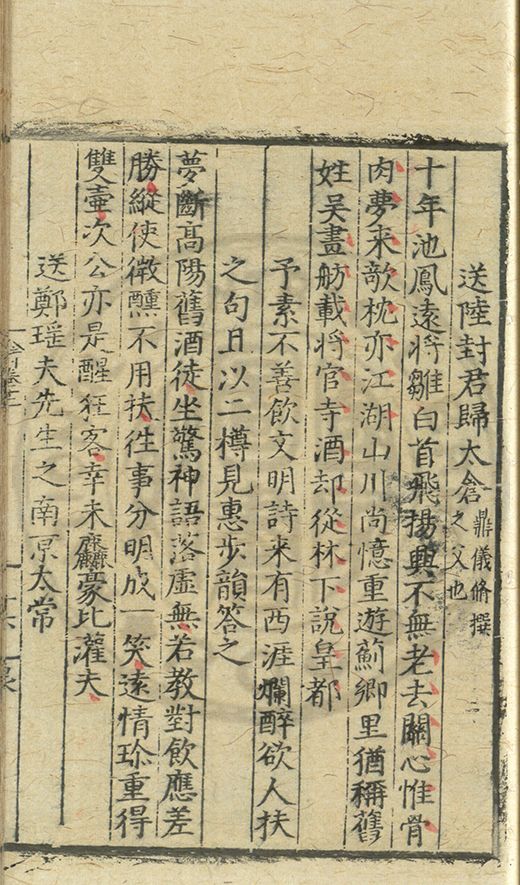 送陸封君歸太倉鼎儀脩撰之父也
十年池鳳遠將雛白首飛揚興不無老去關心惟骨
肉夢來欹枕亦江湖山川尚憶重遊薊鄉里猶稱舊
姓吳畫舫載將官寺酒却從林下說皇都
予素不善飲文明詩来有西涯爛醉欲人扶
之句且以二樽見惠步韻答之
夢斷高陽舊酒徒坐驚神語落虛無若教對飲應差
勝縱使微醺不用扶往事分明成一笑遠情珍重得
雙壷次公亦是醒狂客幸未麤豪比灌夫
送鄭瑶夫先生之南京太常